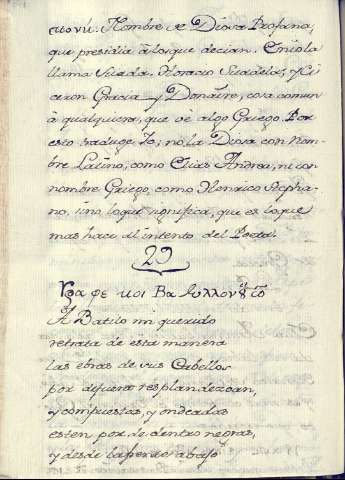 Nombre de Diosa Profana,
que presidia à los que decian. Enio la
llama Suada. Horacio Suadela, y Ci
ceron Gracia y Donayre, cosa comun
à qualquiera, que vè algo Griego. Por
esto traduge Yo, no la Diosa con nom-
bre Latino, como Elias Andrea, ni con
nombre Griego, como Henrico Stepha-
no, sino lo que significa, que es lo que
mas hace al intento del Poeta.
29
A Batilo mi querido
retrata de esta manera
las ebras de sus Cabellos
por defuera resplandezcan,
y compuestas, y ondeadas
esten por de dentro negras,
y desde la frente abajo